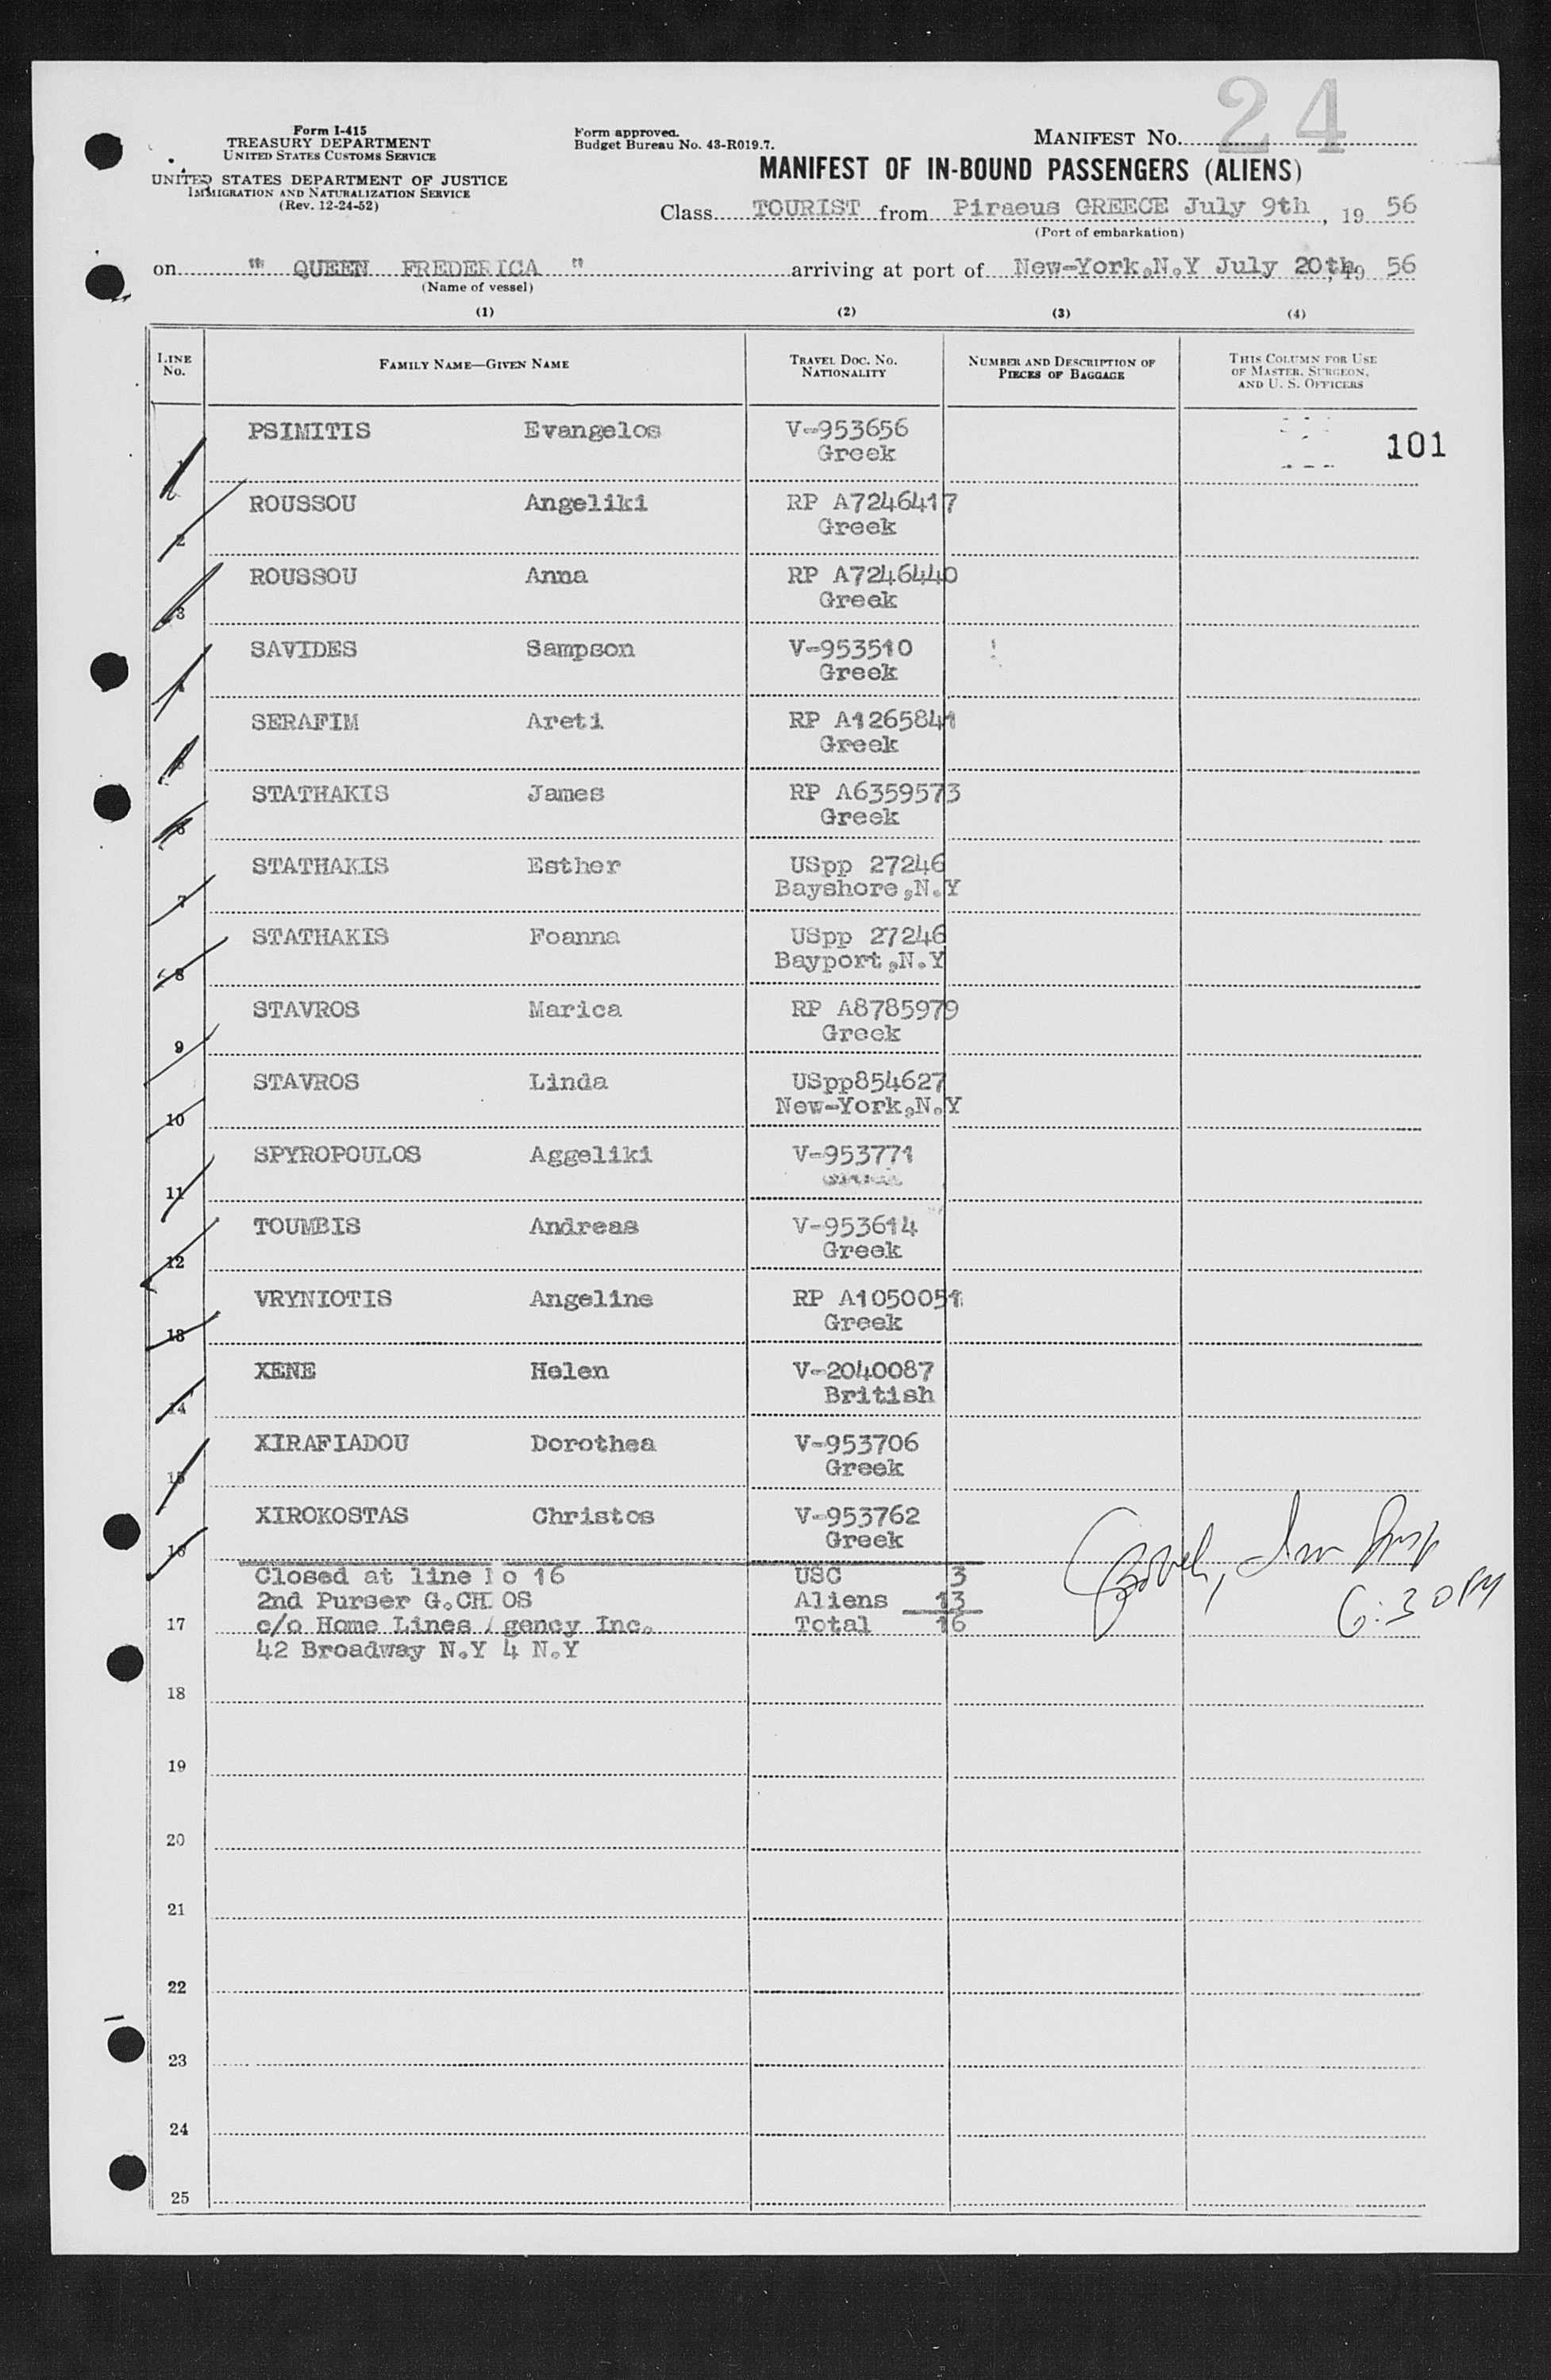 24
Form I-415
TREASURY DEPARTMENT
UNITED STATES CUSTOMS SERVICE
UNITED STATES DEPARTMENT OF JUSTICE
IMMIGRATION AND NATURALIZATION SERVICE
(Rev. 12-24-52)
Form approved.
Budget Bureau No. 43-R019.7.
MANIFEST NO.
MANIFEST OF IN-BOUND PASSENGERS (ALIENS)
Class TOURIST from Piraeus GREECE July 9th, 19 56
(Port of embarkation)
on " QUEEN FREDERICA " arriving at port of New-York,N.Y July 20th, 19 56
(Name of vessel)
(1) (2) (3) (4)
LINE NO. FAMILY NAME—GIVEN NAME TRAVEL DOC. NO. NATIONALITY NUMBER AND DESCRIPTION OF PIECES OF BAGGAGE THIS COLUMN FOR USE OF MASTER, SURGEON, AND U. S. OFFICERS
1 PSIMITIS Evangelos V-953656 101
Greek
2 ROUSSOU Angeliki RP A7246417
Greek
3 ROUSSOU Anna RP A7246440
Greek
4 SAVIDES Sampson V-953510
Greek
5 SERAFIM Areti RP A1265841
Greek
6 STATHAKIS James RP A6359573
Greek
7 STATHAKIS Esther USpp 27246
Bayshore,N.Y
8 STATHAKIS Foanna USpp 27246
Bayport,N.Y
9 STAVROS Marica RP A8785979
Greek
10 STAVROS Linda USpp854627
New-York,N.Y
11 SPYROPOULOS Aggeliki V-953771
12 TOUMBIS Andreas V-953614
Greek
13 VRYNIOTIS Angeline RP A1050051
Greek
14 XENE Helen V-2040087
British
15 XIRAFIADOU Dorothea V-953706
Greek
16 XIROKOSTAS Christos V-953762
Greek
Closed at line No 16 USC 3
2nd Purser G. Aliens 13
17 c/o Home Lines Agency Inc. Total 16
6:30 PM
42 Broadway N.Y 4 N.Y
18
19
20
21
22
23
24
25